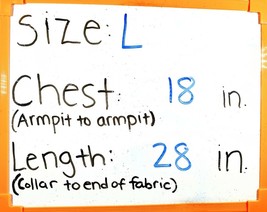 Size: L
Chest: 18 in.
(Armpit to armpit)
Length: 28 in.
(Collar to end of fabric)